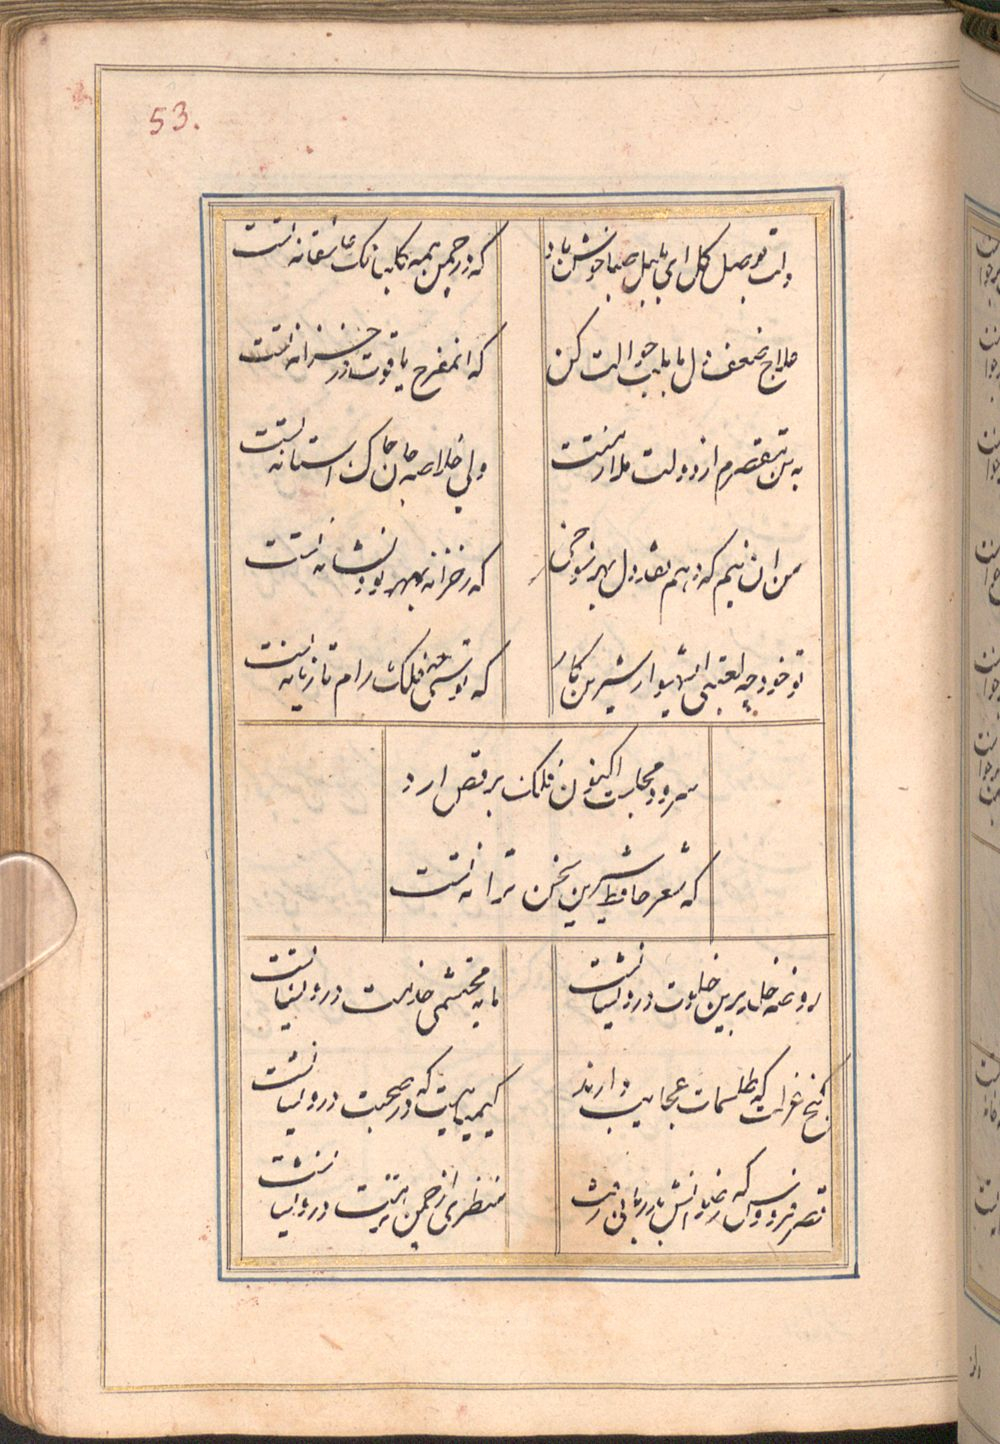 53.
دلت بوصل گل ای بلبل صبا خوش باد
که در چمن همه گلبانگ عاشقانه تست
علاج ضعف دل ما بلب حوالت کن
که این مفرح یاقوت در خزانه تست
به تن مقصرم از دولت ملازمتت
ولی خلاصه جان خاک استانه تست
من ان نیم که دهم نقد دل بهر شوخی
که در خزانه بمهر تو و نشانه تست
تو خود چه لعبتی ای شهسوار شیرین کار
که توسنی چو فلک رام تازیانه تست
سرود مجلست اکنون فلک برقص ارد
که شعر حافظ شیرین سخن ترانه تست
روضه خلد برین خلوت درویشانست
مایه محتشمی خدمت درویشانست
کنج عزلت که طلسمات عجایب دارند
کیمیاییست که در صحبت درویشانست
قصر فردوس که رضوانش بدربانی رفت
منظری از چمن نزهت درویشانست